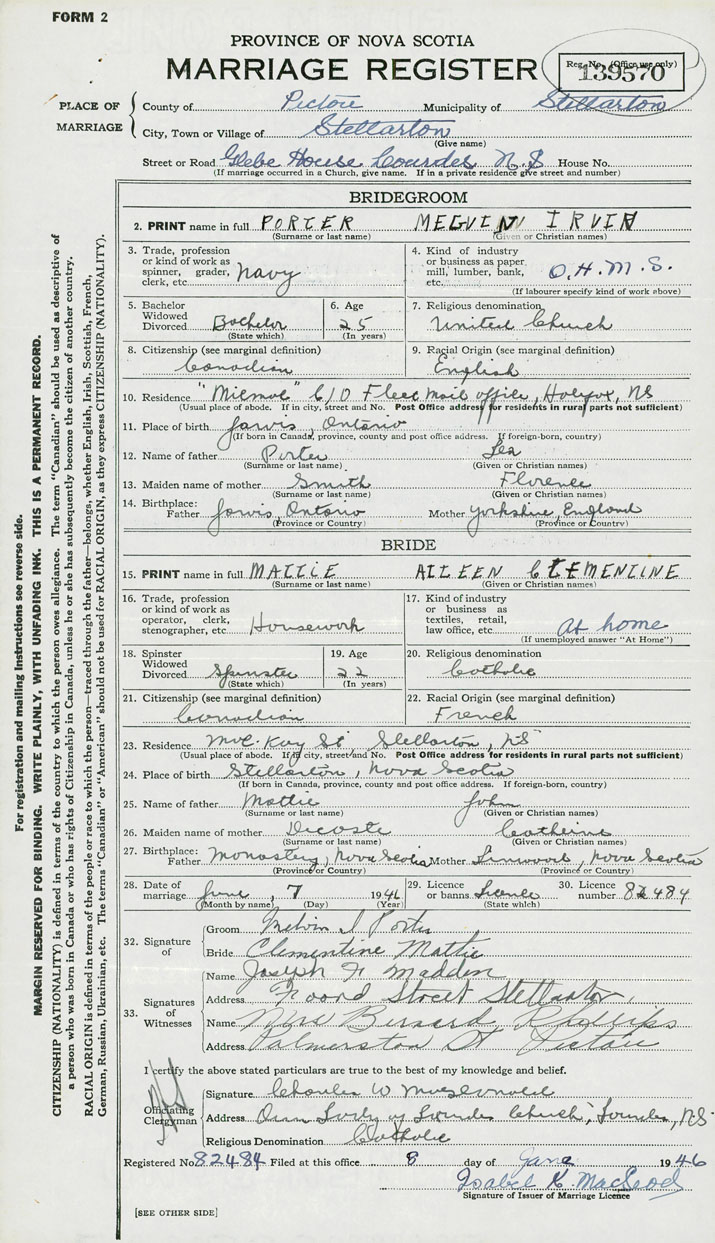 FORM 2
PROVINCE OF NOVA SCOTIA
MARRIAGE REGISTER
Reg. No. (Office use only)
139570
PLACE OF MARRIAGE
County of Pictou Municipality of Stellarton
City, Town or Village of Stellarton
(Give name)
Street or Road Glebe House Lourdes N.S House No.
(If marriage occurred in a Church, give name. If in a private residence give street and number)
BRIDEGROOM
2. PRINT name in full PORTER MELVIN IRVIN
(Surname or last name) (Given or Christian names)
3. Trade, profession or kind of work as spinner, grader, clerk, etc. Navy
4. Kind of industry or business as paper mill, lumber, bank, etc. O.H.M.S.
(If labourer specify kind of work above)
5. Bachelor Widowed Divorced Bachelor
(State which)
6. Age 25
(In years)
7. Religious denomination
United Church
8. Citizenship (see marginal definition)
Canadian
9. Racial Origin (see marginal definition)
English
10. Residence "Micmac" C/O Fleet Mail Office, Halifax, NS
(Usual place of abode. If in city, street and No. Post Office address for residents in rural parts not sufficient)
11. Place of birth Jarvis, Ontario
(If born in Canada, province, county and post office address. If foreign-born, country)
12. Name of father Porter
(Surname or last name) (Given or Christian names)
13. Maiden name of mother Smith Florence
(Surname or last name) (Given or Christian names)
14. Birthplace: Father Jarvis, Ontario Mother Yorkshire, England
(Province or Country) (Province or Country)
BRIDE
15. PRINT name in full MATTIE AILEEN CLEMENTINE
(Surname or last name) (Given or Christian names)
16. Trade, profession or kind of work as operator, clerk, stenographer, etc. Housework
17. Kind of industry or business as textiles, retail, law office, etc. At home
(If unemployed answer "At Home")
18. Spinster Widowed Divorced Spinster
(State which)
19. Age 22
(In years)
20. Religious denomination
Catholic
21. Citizenship (see marginal definition)
Canadian
22. Racial Origin (see marginal definition)
French
23. Residence McKay St, Stellarton, NS
(Usual place of abode. If in city, street and No. Post Office address for residents in rural parts not sufficient)
24. Place of birth Stellarton, Nova Scotia
(If born in Canada, province, county and post office address. If foreign-born, country)
25. Name of father Mattie John
(Surname or last name) (Given or Christian names)
26. Maiden name of mother Dicoste Catherine
(Surname or last name) (Given or Christian names)
27. Birthplace: Father Monastery, Nova Scotia Mother Linwood, Nova Scotia
(Province or Country) (Province or Country)
28. Date of marriage June, 7 1946
(Month by name) (Day) (Year)
29. Licence or banns Licence
(State which)
30. Licence number 82484
32. Signature of
Groom Melvin I Porter
Bride Clementine Mattie
33. Signatures of Witnesses
Name Joseph F Madden
Address Foord Street Stellarton,
Name Mrs Bernard Phillips
Address Palmerston St Pictou
I certify the above stated particulars are true to the best of my knowledge and belief.
Officiating Clergyman
Signature Charles W
Address Our Lady of Lourdes Church, Lourdes, NS
Religious Denomination Catholic
Registered No 82484 Filed at this office 8 day of June 1946
Isabel K. MacLeod
Signature of Issuer of Marriage Licence
[SEE OTHER SIDE]
For registration and mailing instructions see reverse side.
MARGIN RESERVED FOR BINDING. WRITE PLAINLY, WITH UNFADING INK. THIS IS A PERMANENT RECORD.
CITIZENSHIP (NATIONALITY) is defined in terms of the country to which the person owes allegiance. The term "Canadian" should be used as descriptive of
a person who was born in Canada or who has rights of Citizenship in Canada, unless he or she has subsequently become the citizen of another country.
RACIAL ORIGIN is defined in terms of the people or race to which the person—traced through the father—belongs, whether English, Irish, Scottish, French,
German, Russian, Ukrainian, etc. The terms "Canadian" or "American" should not be used for RACIAL ORIGIN, as they express CITIZENSHIP (NATIONALITY).